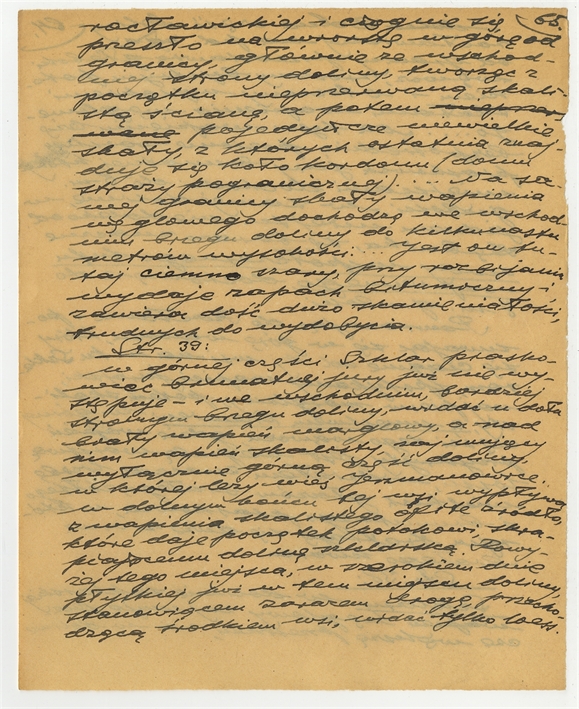 racławickiej i ciągnie się 65
przeszło na wiorstę w górę od
granicy, głównie ze wschod-
niej strony doliny, tworząc z
początku nieprzerwaną skali-
stą ścianę, a potem nieprzer
waną pojedyńcze niewielkie
skały, z których ostatnia znaj-
duje się koło kordonu (domu
straży pogranicznej). ... Na sa-
mej granicy skały wapienia
węglowego dochodzą we wschod-
nim brzegu doliny do kilkunastu
metrów wysokości... Jest on tu-
taj ciemno szary, przy rozbijaniu
wydaje zapach bitumiczny i
zawiera dość dużo skamieniałości,
trudnych do wydobycia.
Str. 39:
W górnej części Szklar piasko-
wiec brunatnej jury już nie wy-
stępuje - i we wschodnim, bardziej
stromym brzegu doliny, widać u dołu
biały wapień marglowy, a nad
nim wapień skalisty, zajmujący
wyłącznie górną część doliny,
w której leży wieś Jerzmanowice.
W dolnym końcu tej wsi wypływa
z wapienia skalistego obfite źródło,
które daje początek potokowi, skra-
piającemu dolinę szklarską. Powy-
żej tego miejsca, w szerokiem dnie
płytkiej już w tem miejscu doliny,
stanowiącem zarazem drogę, przecho-
dzącą środkiem wsi, widać tylko loess.